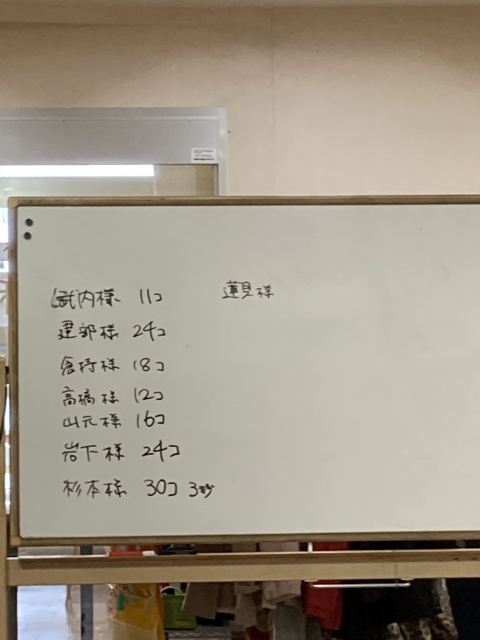 内様 11コ
蓮見様
建部様 24コ
倉持様 18コ
高橋様 12コ
山元様 16コ
岩下様 24コ
杉本様 30コ 3秒